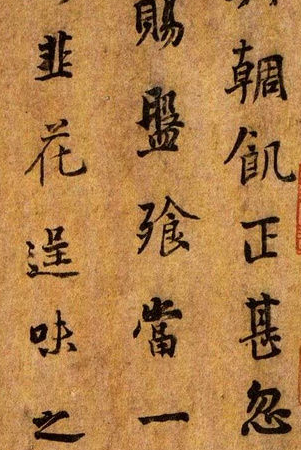 輖飢正甚忽
賜盤飱當一
韭花逞味之